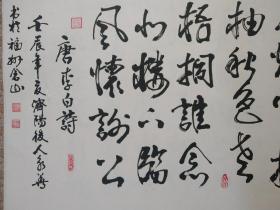 柚秋色老
梧桐誰念
北樓上臨
風懷謝公
唐李白詩
壬辰年夏濟陽後人永
書於福州金山